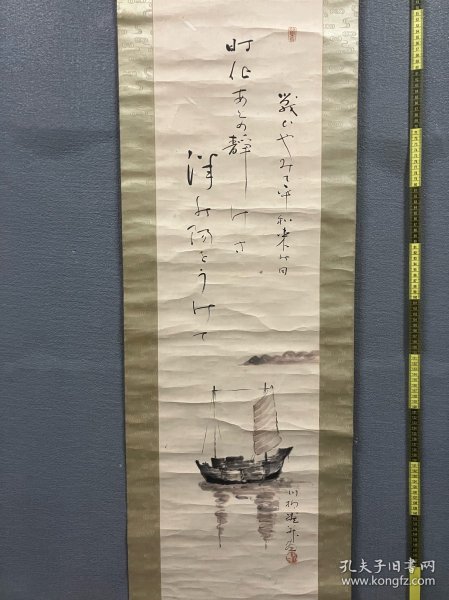 戦ひやみて平和来日
時化あとの静けさ
洋の陽をうけて
川柳
孔夫子旧书网
www.kongfz.com